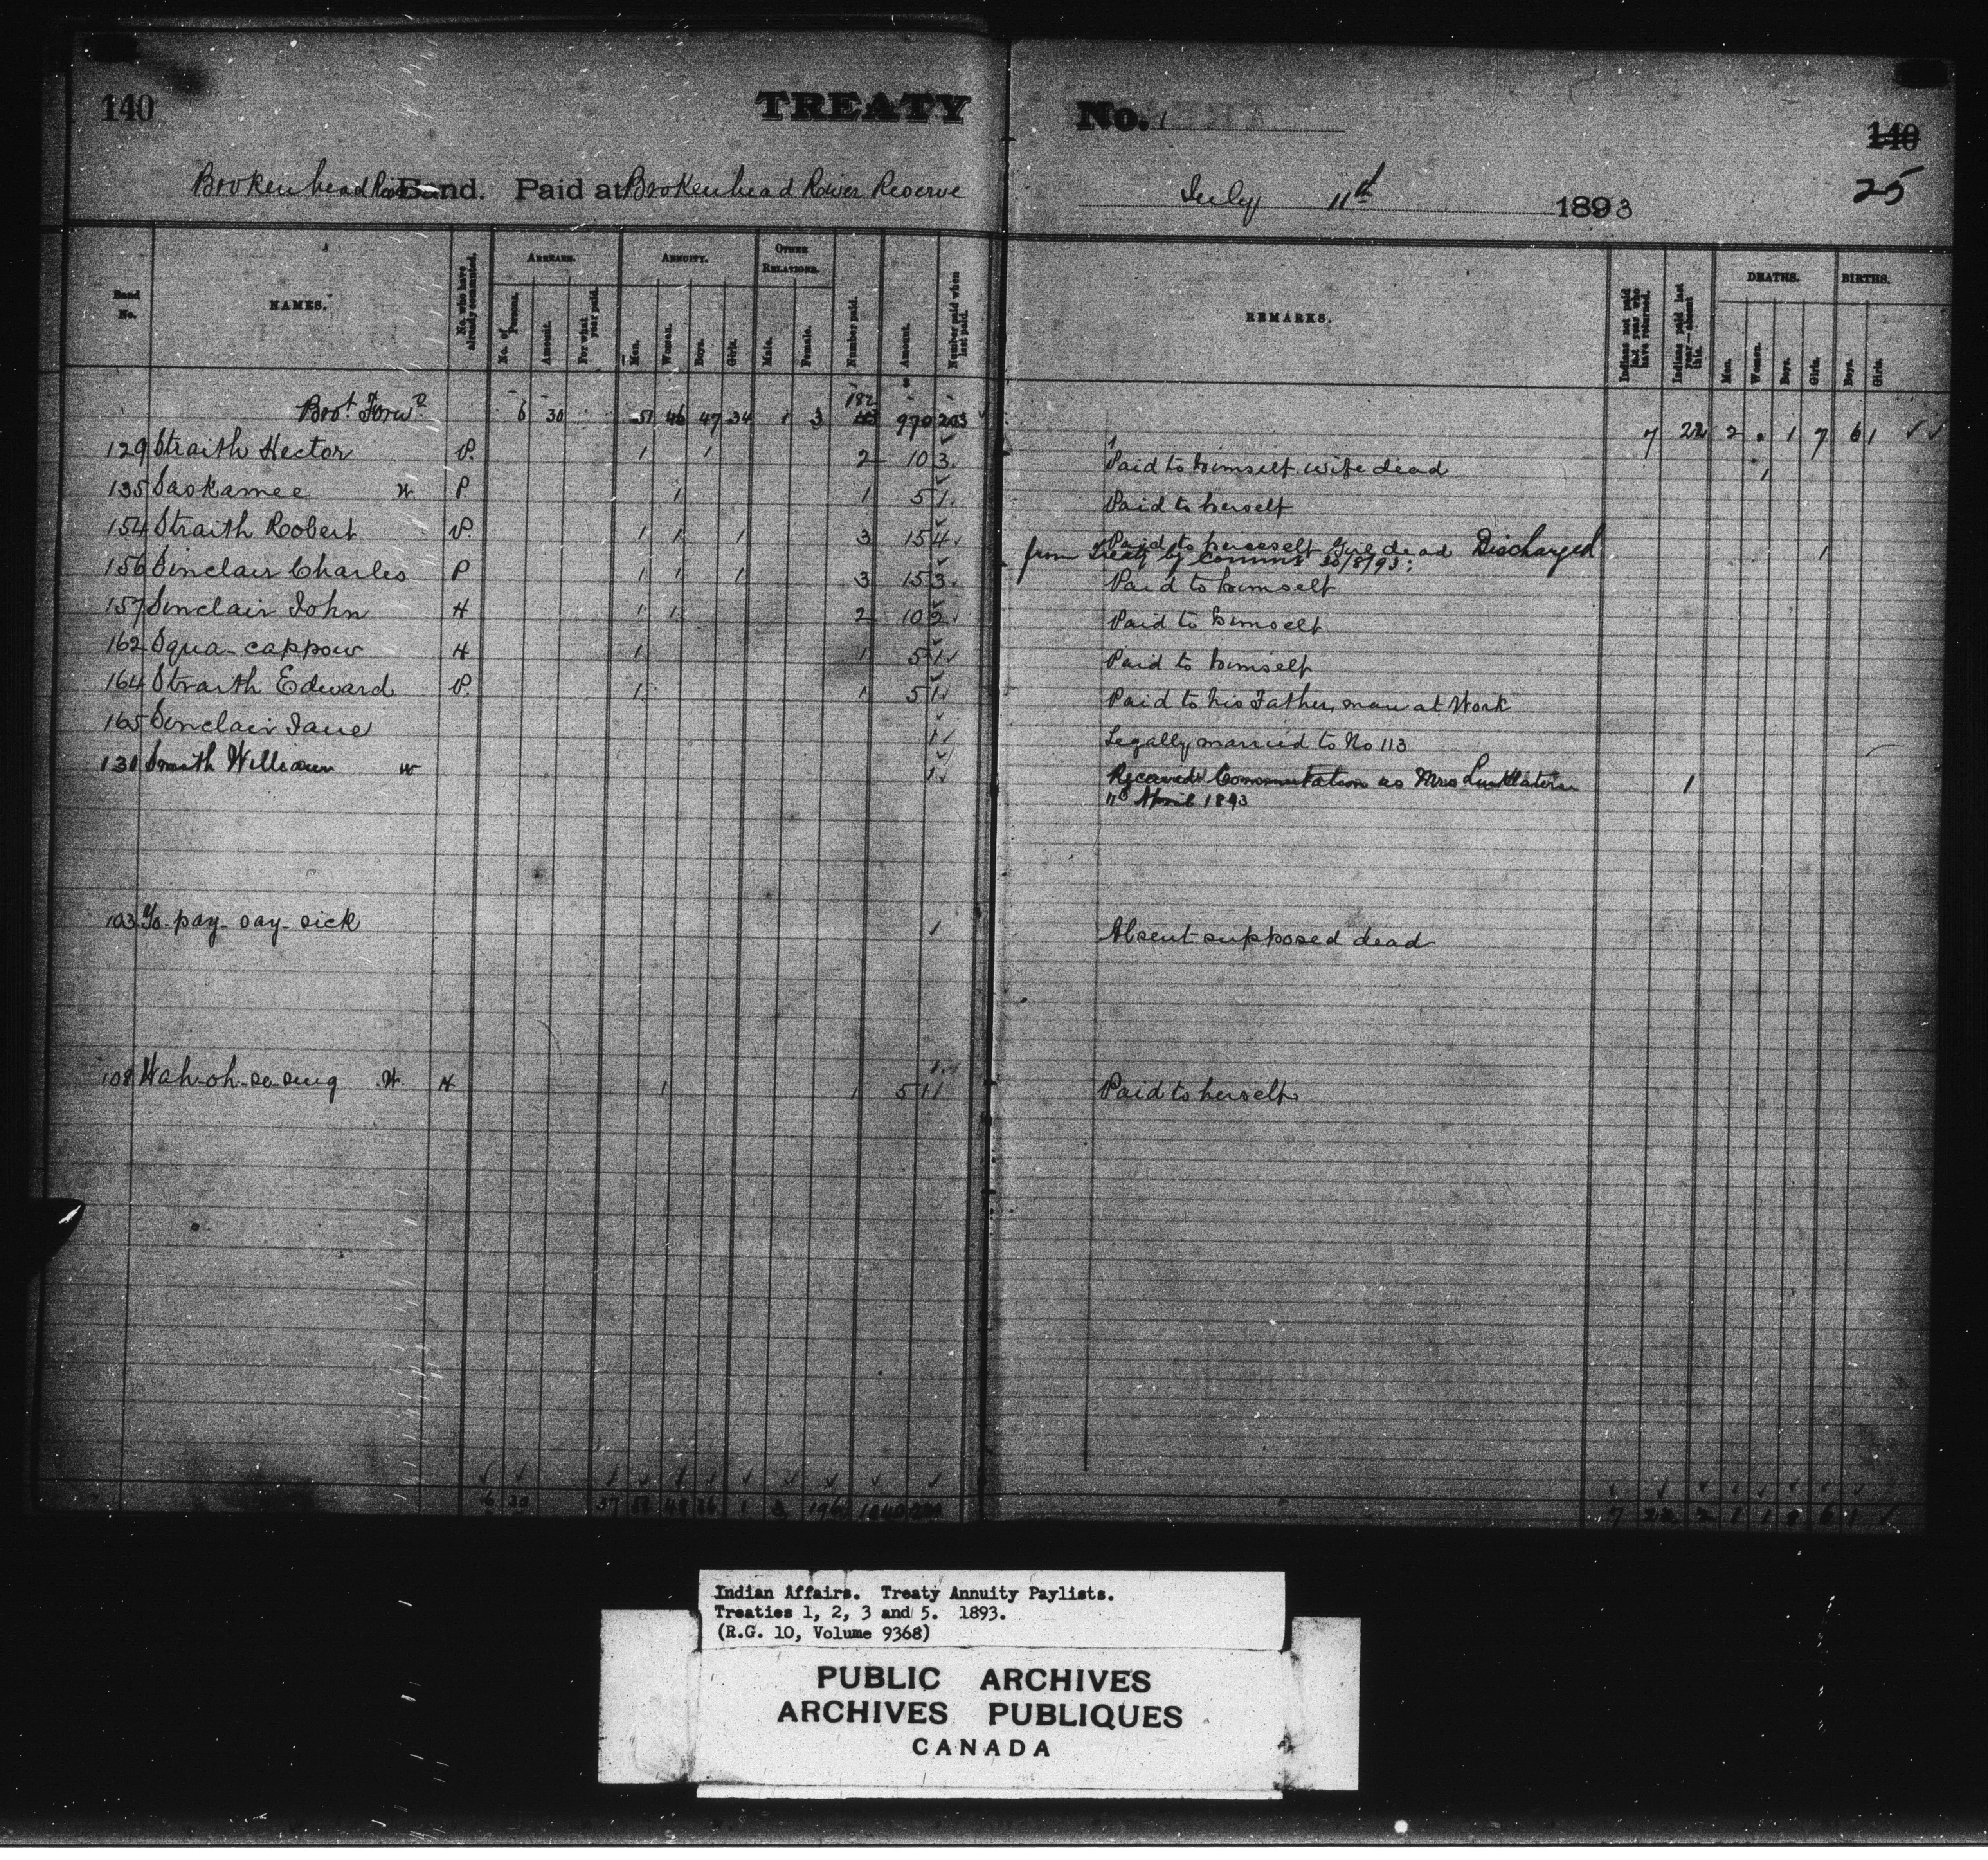 140
TREATY No. 1
140
25
Brokenhead River Band. Paid at Brokenhead River Reserve July 11th 1893
Band No.
NAMES.
No. who have already commuted.
ARREARS.
No. of Persons.
Amount.
For what year paid.
ANNUITY.
Men.
Women.
Boys.
Girls.
OTHER RELATIONS.
Male.
Female.
Number paid.
Amount.
Number paid when last paid.
REMARKS.
Indians not paid last year who have returned.
Indians paid last year—absent this.
DEATHS.
Men.
Women.
Boys.
Girls.
BIRTHS.
Boys.
Girls.
Brot Forwd 6 30 51 46 47 34 1 3 182 970 203 7 22 2 1 7 6 1
129 Straith Hector P. 1 1 2 10 3 Paid to himself wife dead 1
135 Saskamee W P. 1 1 5 1 Paid to herself
154 Straith Robert P. 1 1 1 3 15 4 Paid to herself Girl dead Discharged 1
from Treaty by Comms 30/8/93
156 Sinclair Charles P 1 1 1 3 15 3 Paid to himself
157 Sinclair John H 1 1 2 10 2 Paid to himself
162 Squa-cappow H 1 1 5 1 Paid to himself
164 Straith Edward P. 1 1 5 1 Paid to his Father, man at Work
165 Sinclair Jane 1 Legally married to No 113
131 Smith William w 1 Received Commutation as Mrs Linklater 1
April 1893
103 Yo-pay-say-sick 1 Absent supposed dead
108 Wah-oh-se-sing W. H 1 1 5 1 Paid to herself
6 30 37 1 3 196 1040
7 22 2 1 1 8 6 1
Indian Affairs. Treaty Annuity Paylists.
Treaties 1, 2, 3 and 5. 1893.
(R.G. 10, Volume 9368)
PUBLIC ARCHIVES
ARCHIVES PUBLIQUES
CANADA